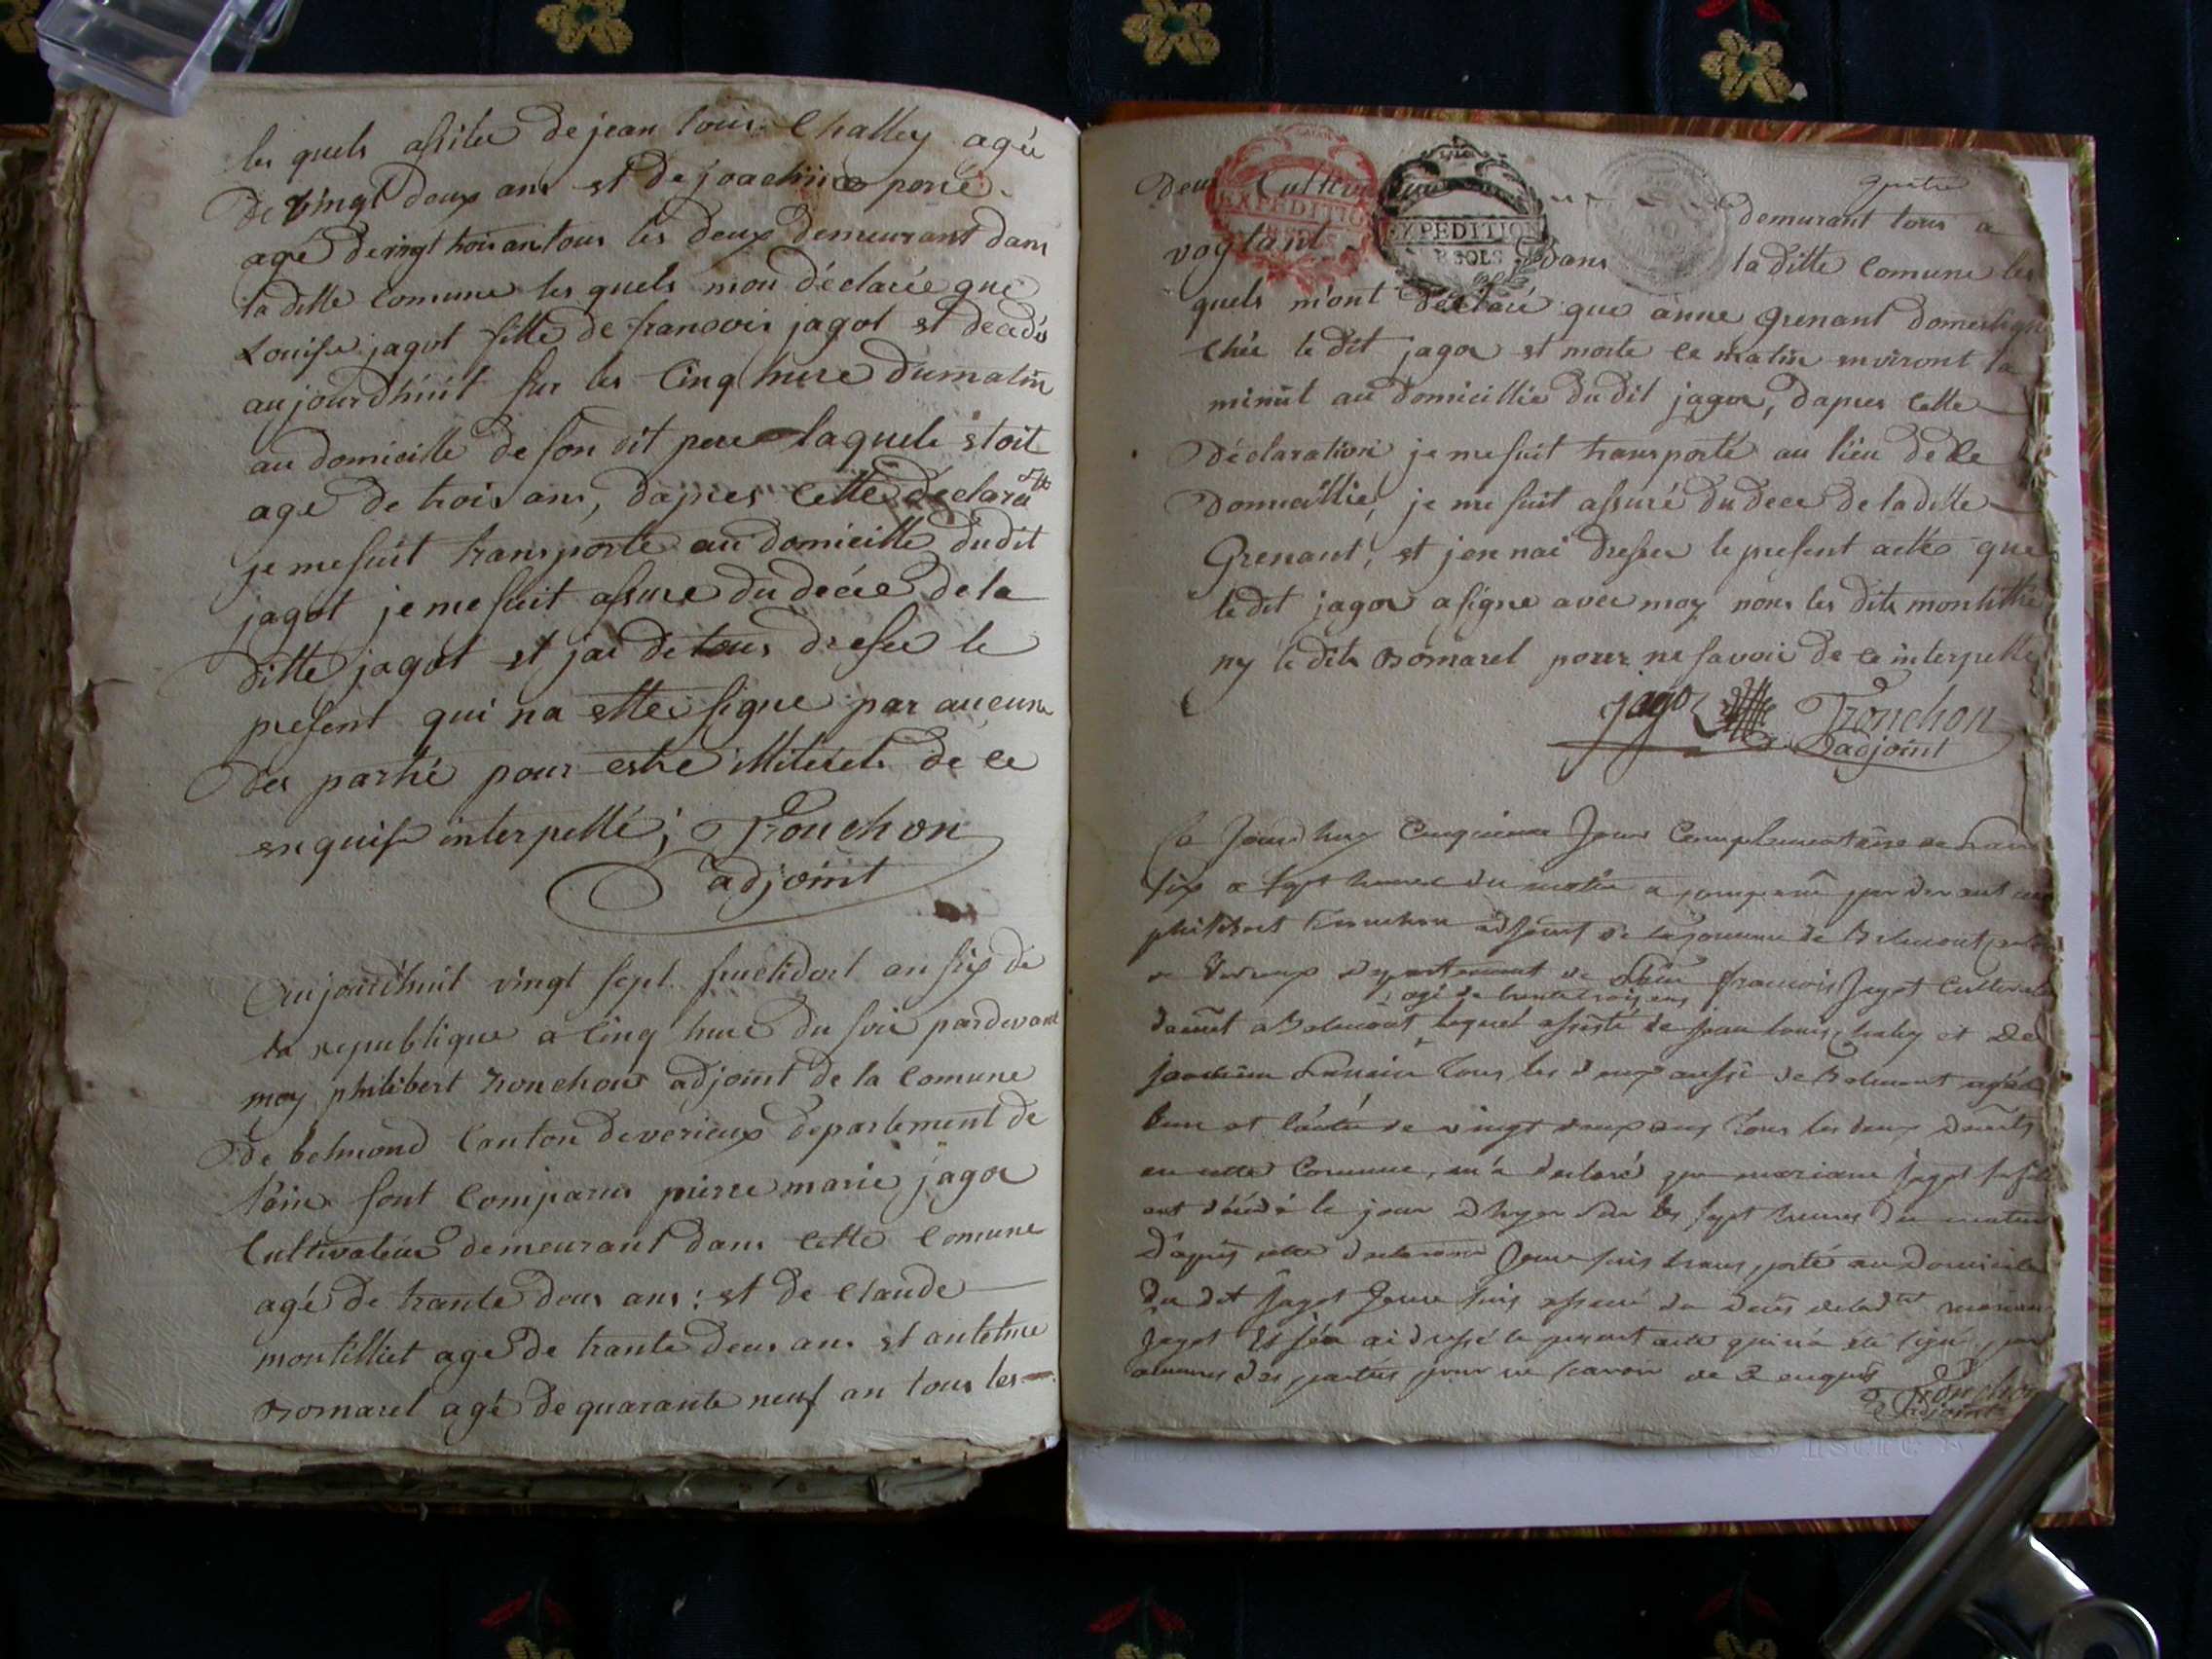 les quels assiter de jean louis Challey agée
de vingt deux ans et de joachim
agé de vingt trois an tous les deux demeurant dans
la ditte comune les quels mon déclarée que
Louise jagot fille de francois jagot et decedé
aujourdhuit sur les Cinq hure du matin
au domicille de son dit pere laquele etoit
age de trois ans, dapres cette declara on
je me suit transporte au domicille du dit
jagot je me suit assure du decée de la
ditte jagot et jai de tous dresser le
present qui na ette signe par aucune
des partie pour estre illiteret de ce
enquis interpellé; Tronchon
adjoint
aujourdhuit vingt sept fructidort an six de
la republique a Cinq hure du soir pardevant
moy philibert tronchon adjoint de la comune
de belmond Canton de verieux departement de
lain sont comparus pierre marie jagot
Cultivateur demeurant dans cette comune
agé de trante deus ans : et de claude
montilliet age de trante deus ans et antelme
Bomarel agé de quarante neuf an tous les
quatre
Deus Cultiv demurant tous a
EXPEDITION
EXPEDITION
SOLS
vogland dans la ditte comune les
quels m'ont déclaré que anne Grenant domestique
chée le dit jagot et morte ce matin environt la
minuit au domicillie du dit jagot, dapres cette
déclaration je me suit transporté au lieu de ce
Domicillie, je me suit assuré du dece de la ditte
Grenant, et jen nai dresser le present acte que
le dit jagot a signe avec moy nons les dits montillie
ny le dits Bomarel pour ne savoir de ce interpelle
jagot Tronchon
adjoint
Ce Jourdhuy Cinquieme Jour Complementaire de lan
six a sept heures du matin a comparu par devant moy
philibert tronchon adjoint de la Commune de Belmont
de Verieux departement de Lain francois Jagot Cultivateur
agé de trente trois ans
a Belmont lequel assisté de Jean louis chaley et de
joachim tous les deux aussi de Belmont agés
lun et lautre de vingt deux ans tous les deux
en cette Commune, m'a declaré que mariane Jagot sa fille
est décédé le jour dhyer sur les sept heures du matin
D'après cette declaration Je me suis transporté au Domicile
du dit Jagot Je me suis assuré du decès de ladte mariane
Jagot Et j'en ai dressé le present acte qui n'a été signé par
aucunes des parties pour ne scavoir de ce enquis
Tronchon
adjoint